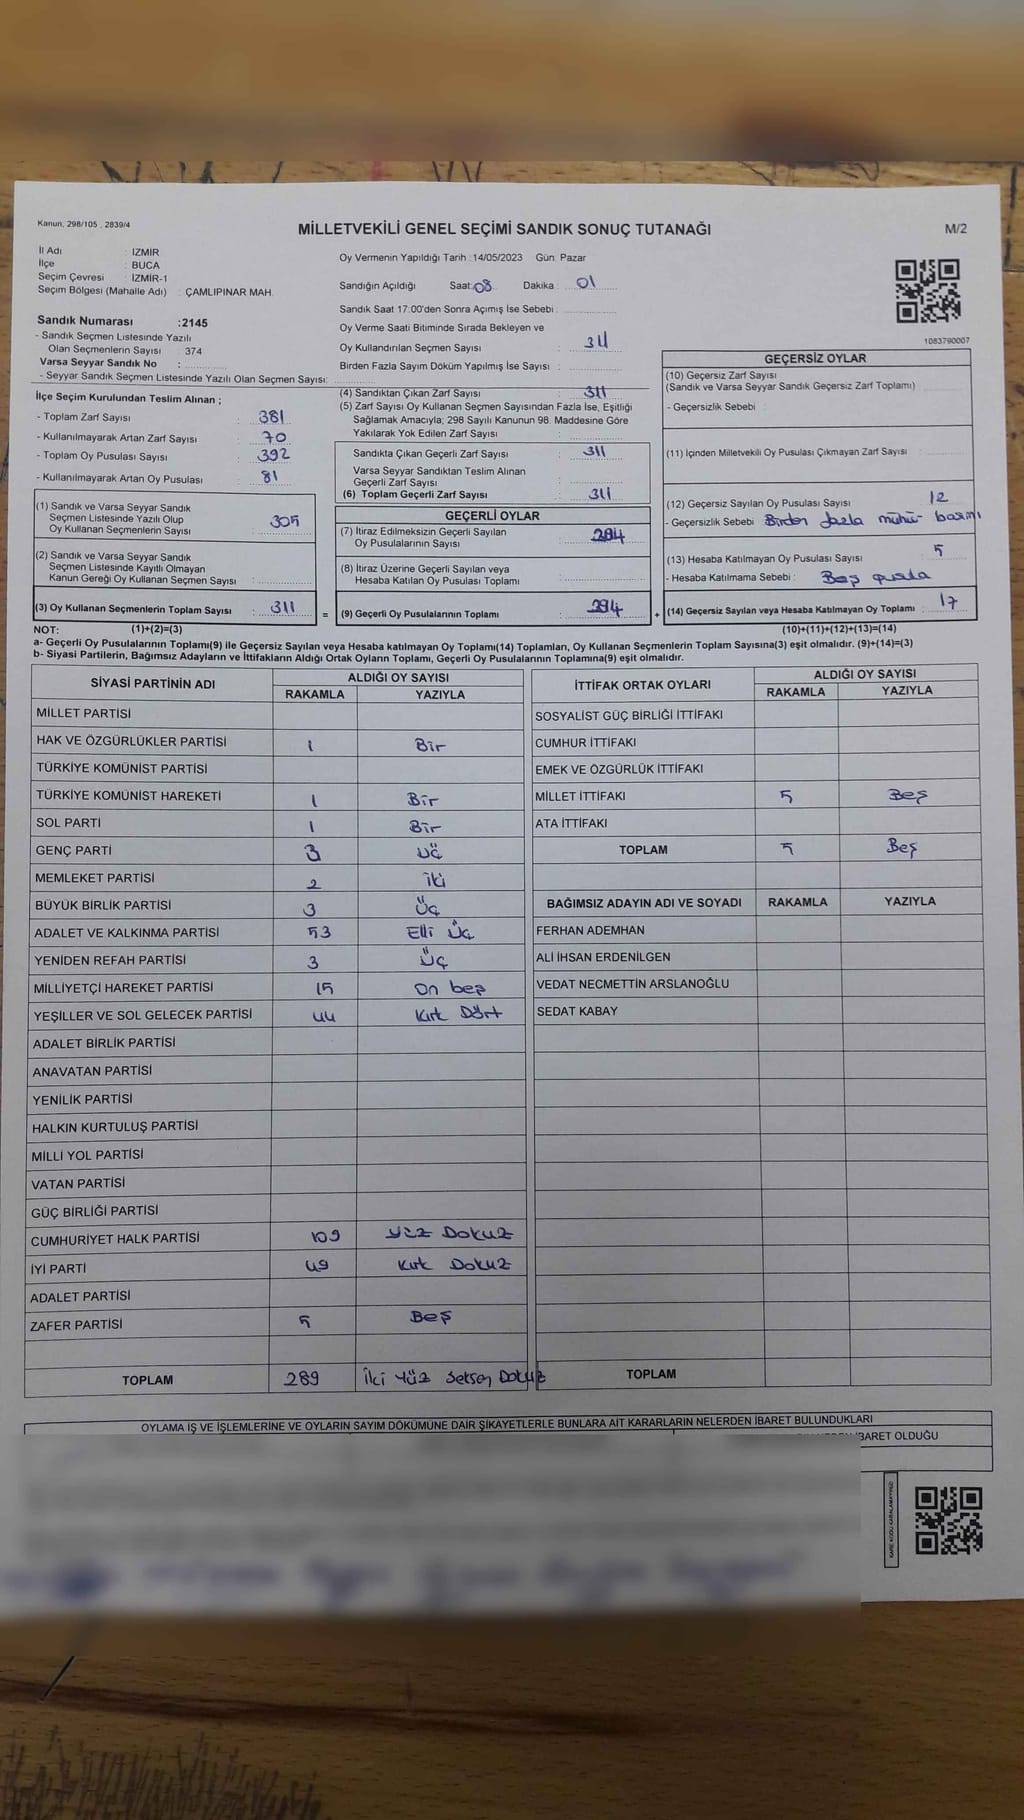 Kanun, 298/105 , 2839/4
MİLLETVEKİLİ GENEL SEÇİMİ SANDIK SONUÇ TUTANAĞI
M/2
İl Adı : İZMİR
İlçe : BUCA
Seçim Çevresi : İZMİR-1
Seçim Bölgesi (Mahalle Adı) : ÇAMLIPINAR MAH.
Sandık Numarası :2145
- Sandık Seçmen Listesinde Yazılı
Olan Seçmenlerin Sayısı : 374
Varsa Seyyar Sandık No :
- Seyyar Sandık Seçmen Listesinde Yazılı Olan Seçmen Sayısı:
Oy Vermenin Yapıldığı Tarih :14/05/2023 Gün: Pazar
Sandığın Açıldığı Saat: 08 Dakika : 01
Sandık Saat 17:00'den Sonra Açımış İse Sebebi :
Oy Verme Saati Bitiminde Sırada Bekleyen ve
Oy Kullandırılan Seçmen Sayısı : 311
Birden Fazla Sayım Döküm Yapılmış İse Sayısı :
1083790007
İlçe Seçim Kurulundan Teslim Alınan ;
- Toplam Zarf Sayısı : 381
- Kullanılmayarak Artan Zarf Sayısı : 70
- Toplam Oy Pusulası Sayısı : 392
- Kullanılmayarak Artan Oy Pusulası : 81
(1) Sandık ve Varsa Seyyar Sandık
Seçmen Listesinde Yazılı Olup
Oy Kullanan Seçmenlerin Sayısı : 305
(2) Sandık ve Varsa Seyyar Sandık
Seçmen Listesinde Kayıtlı Olmayan
Kanun Gereği Oy Kullanan Seçmen Sayısı :
(3) Oy Kullanan Seçmenlerin Toplam Sayısı : 311 =
(4) Sandıktan Çıkan Zarf Sayısı : 311
(5) Zarf Sayısı Oy Kullanan Seçmen Sayısından Fazla İse, Eşitliği
Sağlamak Amacıyla; 298 Sayılı Kanunun 98. Maddesine Göre
Yakılarak Yok Edilen Zarf Sayısı :
Sandıkta Çıkan Geçerli Zarf Sayısı : 311
Varsa Seyyar Sandıktan Teslim Alınan
Geçerli Zarf Sayısı :
(6) Toplam Geçerli Zarf Sayısı : 311
GEÇERLİ OYLAR
(7) İtiraz Edilmeksizin Geçerli Sayılan
Oy Pusulalarının Sayısı :
(8) İtiraz Üzerine Geçerli Sayılan veya
Hesaba Katılan Oy Pusulası Toplamı :
(9) Geçerli Oy Pusulalarının Toplamı : 294 +
GEÇERSİZ OYLAR
(10) Geçersiz Zarf Sayısı
(Sandık ve Varsa Seyyar Sandık Geçersiz Zarf Toplamı) :
- Geçersizlik Sebebi :
(11) İçinden Milletvekili Oy Pusulası Çıkmayan Zarf Sayısı :
(12) Geçersiz Sayılan Oy Pusulası Sayısı : 12
- Geçersizlik Sebebi : Birden fazla mühür basımı
(13) Hesaba Katılmayan Oy Pusulası Sayısı : 5
- Hesaba Katılmama Sebebi : Boş pusula
(14) Geçersiz Sayılan veya Hesaba Katılmayan Oy Toplamı : 17
NOT: (1)+(2)=(3) (10)+(11)+(12)+(13)=(14)
a- Geçerli Oy Pusulalarının Toplamı(9) ile Geçersiz Sayılan veya Hesaba katılmayan Oy Toplamı(14) Toplamları, Oy Kullanan Seçmenlerin Toplam Sayısına(3) eşit olmalıdır. (9)+(14)=(3)
b- Siyasi Partilerin, Bağımsız Adayların ve İttifakların Aldığı Oy Sayısı Ortak Oyların Toplamı, Geçerli Oy Pusulalarının Toplamına(9) eşit olmalıdır.
SİYASİ PARTİNİN ADI ALDIĞI OY SAYISI
RAKAMLA YAZIYLA
MİLLET PARTİSİ
HAK VE ÖZGÜRLÜKLER PARTİSİ 1 Bir
TÜRKİYE KOMÜNİST PARTİSİ
TÜRKİYE KOMÜNİST HAREKETİ 1 Bir
SOL PARTİ 1 Bir
GENÇ PARTİ 3 Üç
MEMLEKET PARTİSİ 2 İki
BÜYÜK BİRLİK PARTİSİ 3 Üç
ADALET VE KALKINMA PARTİSİ 53 Elli Üç
YENİDEN REFAH PARTİSİ 3 Üç
MİLLİYETÇİ HAREKET PARTİSİ 15 On beş
YEŞİLLER VE SOL GELECEK PARTİSİ 44 Kırk Dört
ADALET BİRLİK PARTİSİ
ANAVATAN PARTİSİ
YENİLİK PARTİSİ
HALKIN KURTULUŞ PARTİSİ
MİLLİ YOL PARTİSİ
VATAN PARTİSİ
GÜÇ BİRLİĞİ PARTİSİ
CUMHURİYET HALK PARTİSİ 109 Yüz Dokuz
İYİ PARTİ 49 Kırk Dokuz
ADALET PARTİSİ
ZAFER PARTİSİ 5 Beş
TOPLAM 289 İki Yüz Seksen Dokuz
İTTİFAK ORTAK OYLARI ALDIĞI OY SAYISI
RAKAMLA YAZIYLA
SOSYALİST GÜÇ BİRLİĞİ İTTİFAKI
CUMHUR İTTİFAKI
EMEK VE ÖZGÜRLÜK İTTİFAKI
MİLLET İTTİFAKI 5 Beş
ATA İTTİFAKI
TOPLAM 5 Beş
BAĞIMSIZ ADAYIN ADI VE SOYADI RAKAMLA YAZIYLA
FERHAN ADEMHAN
ALİ İHSAN ERDENİLGEN
VEDAT NECMETTİN ARSLANOĞLU
SEDAT KABAY
TOPLAM
OYLAMA İŞ VE İŞLEMLERİNE VE OYLARIN SAYIM DÖKÜMÜNE DAİR ŞİKAYETLERLE BUNLARA AİT KARARLARIN NELERDEN İBARET BULUNDUKLARI
İBARET OLDUĞU
KARE KODU KARALAMAYINIZ